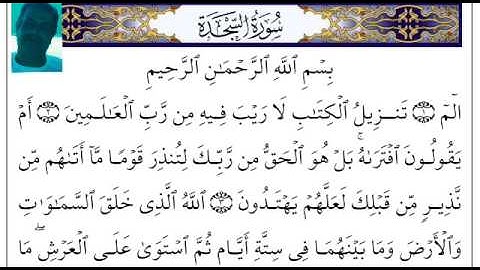 سُورَةُ السَّجْدَةِ
بِسْمِ ٱللَّهِ ٱلرَّحْمَـٰنِ ٱلرَّحِيمِ
الٓمٓ ١ تَنزِيلُ ٱلْكِتَـٰبِ لَا رَيْبَ فِيهِ مِن رَّبِّ ٱلْعَـٰلَمِينَ ٢ أَمْ
يَقُولُونَ ٱفْتَرَىٰهُ ۚ بَلْ هُوَ ٱلْحَقُّ مِن رَّبِّكَ لِتُنذِرَ قَوْمًا مَّآ أَتَىٰهُم مِّن
نَّذِيرٍ مِّن قَبْلِكَ لَعَلَّهُمْ يَهْتَدُونَ ٣ ٱللَّهُ ٱلَّذِى خَلَقَ ٱلسَّمَـٰوَٰتِ
وَٱلْأَرْضَ وَمَا بَيْنَهُمَا فِى سِتَّةِ أَيَّامٍ ثُمَّ ٱسْتَوَىٰ عَلَى ٱلْعَرْشِ ۖ مَا